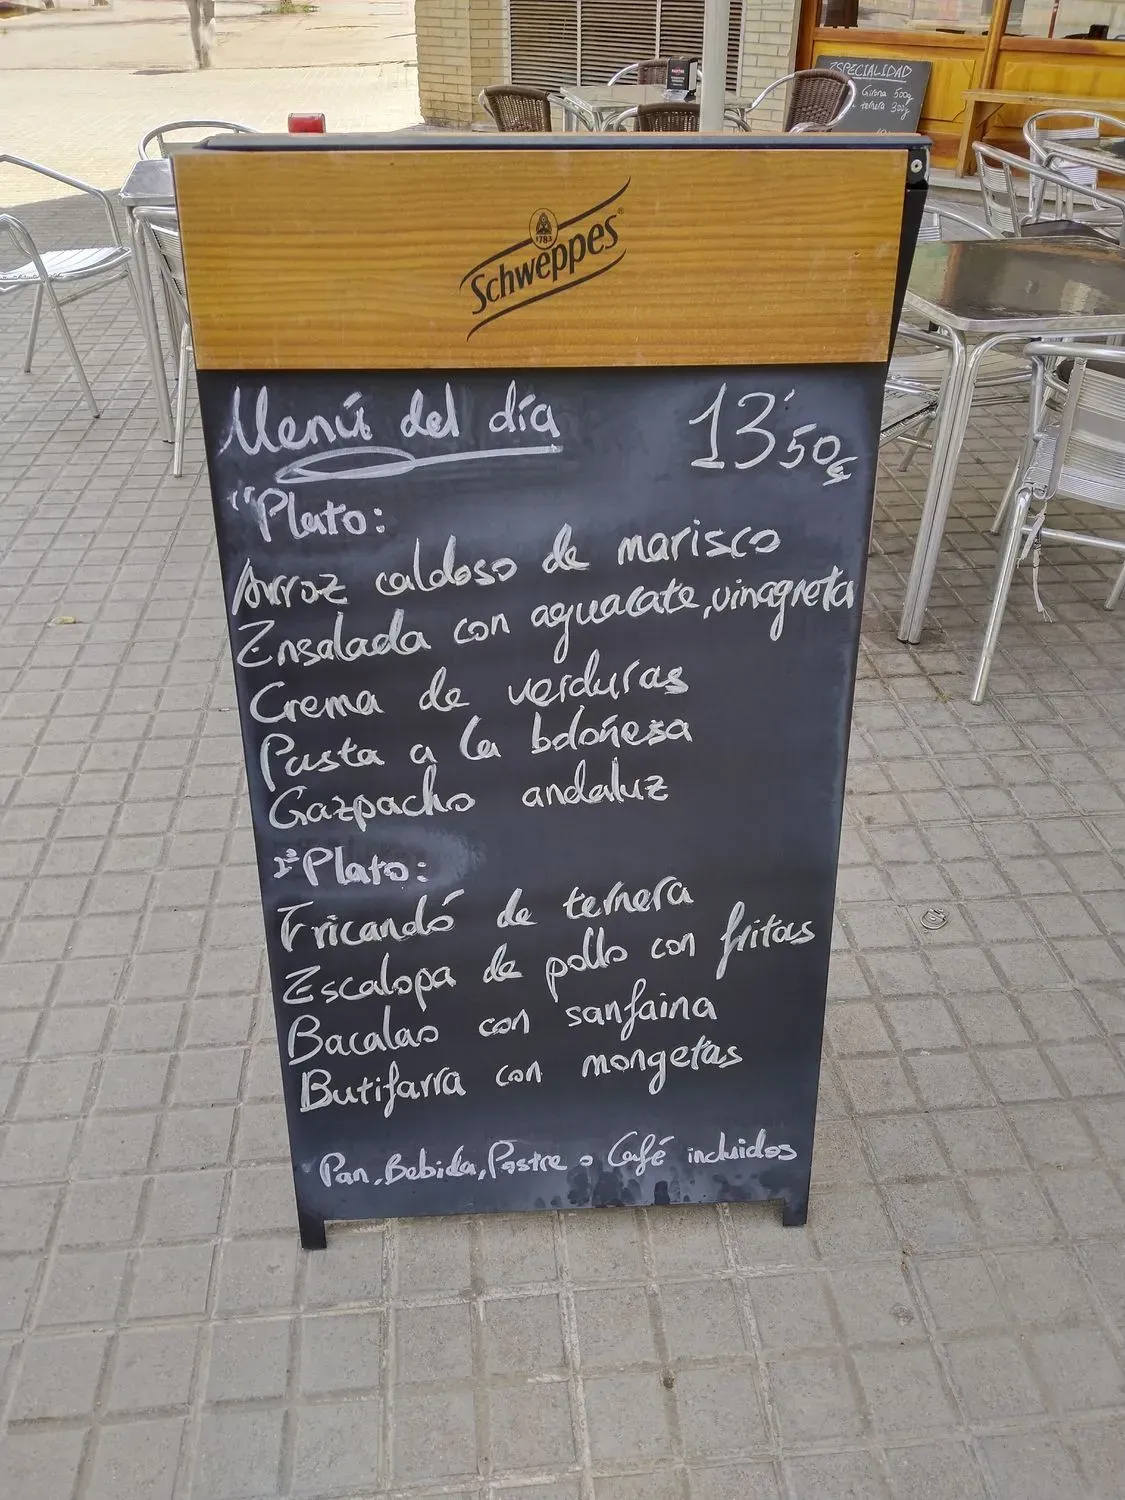 ESPECIALIDAD
Girona 500g
ternera 300g
1783
Schweppes®
Menú del día 13'50€
1º Plato:
Arroz caldoso de marisco
Ensalada con aguacate, vinagreta
Crema de verduras
Pasta a la boloñesa
Gazpacho andaluz
2º Plato:
Fricandó de ternera
Escalopa de pollo con fritas
Bacalao con sanfaina
Butifarra con mongetas
Pan, Bebida, Postre o Café incluidos